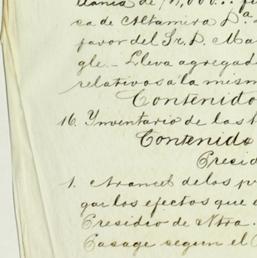 tancia de
ca de Altamira Pª
favor del Sr. D. Ma
gle.- Lleva agregad
relativos a la mism
Contenido
16. Ynventario de las
Contenido
Presid
1. Arancel de los p
gar los efectos que
Presidio de Ntra.
Casage segun el